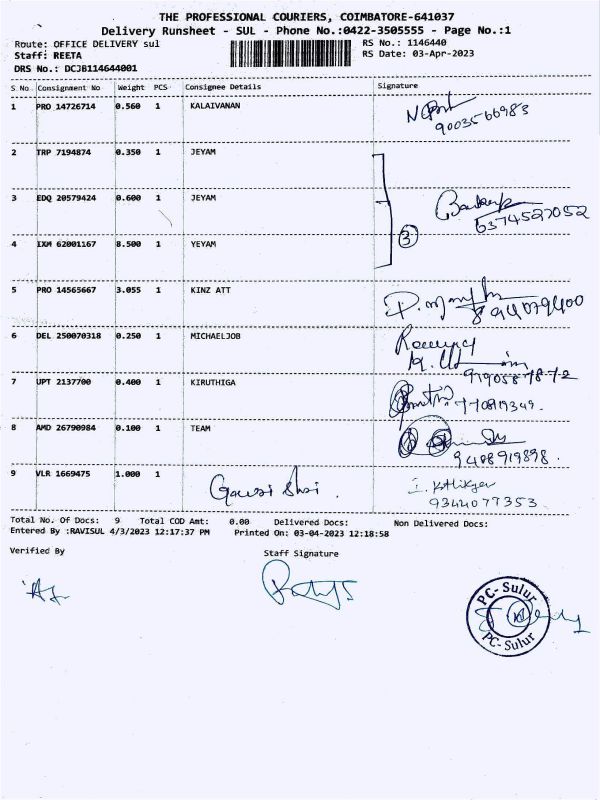 THE PROFESSIONAL COURIERS, COIMBATORE-641037
Delivery Runsheet - SUL - Phone No.:0422-3505555 - Page No.:1
Route: OFFICE DELIVERY sul
RS No.: 1146440
Staff: REETA
RS Date: 03-Apr-2023
DRS No.: DCJB114644001
S No Consignment No Weight PCS Consignee Details Signature
1 PRO 14726714 0.560 1 KALAIVANAN
9003566983
2 TRP 7194874 0.350 1 JEYAM
3 EDQ 20579424 0.600 1 JEYAM
6374527052
3
4 IXM 62001167 8.500 1 YEYAM
5 PRO 14565667 3.055 1 KINZ ATT
6 DEL 250070318 0.250 1 MICHAELJOB
7 UPT 2137700 0.400 1 KIRUTHIGA
8 AMD 26790984 0.100 1 TEAM
9488919898.
9 VLR 1669475 1.000 1 Gowri Shri.
9344077353
Total No. Of Docs: 9 Total COD Amt: 0.00 Delivered Docs: Non Delivered Docs:
Entered By :RAVISUL 4/3/2023 12:17:37 PM Printed On: 03-04-2023 12:18:58
Verified By Staff Signature
PC-Sulur
PC-Sulur